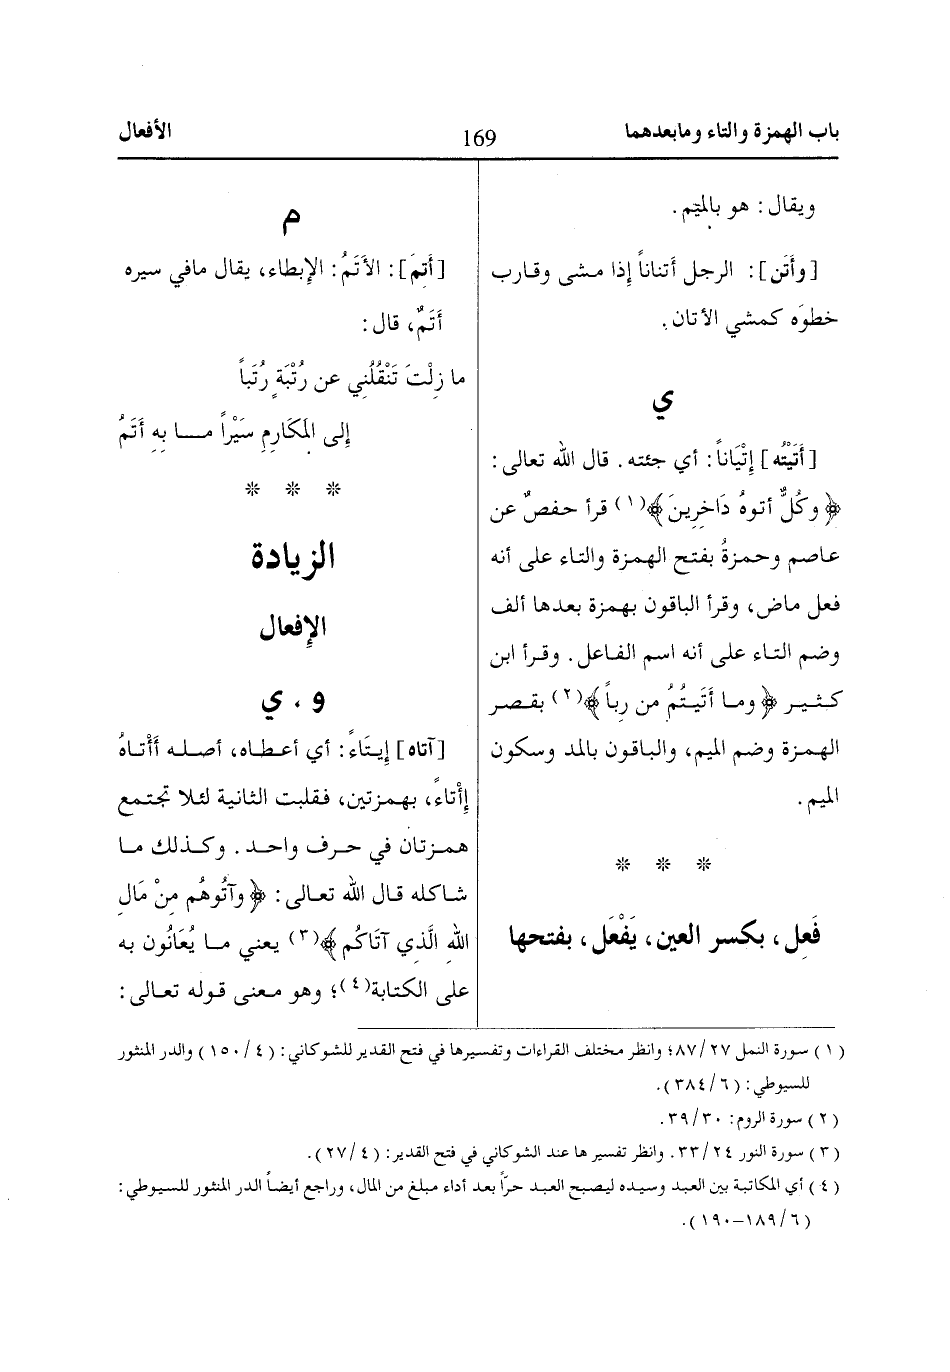 باب الهمزة والتاء ومابعدهما
169
الأفعال
ويقال: هو بالميّم.
[وأَتَن]: الرجل أتناناً إذا مشى وقارب
خطوَه كمشي الأتان.
ي
[أَتَيْتُه] إِتْيَاناً: أي جئته. قال الله تعالى:
﴿وكُلٌّ أتوهُ دَاخِرِينَ﴾(١) قرأ حفصٌ عن
عاصم وحمزةُ بفتح الهمزة والتاء على أنه
فعل ماض، وقرأ الباقون بهمزة بعدها ألف
وضم التاء على أنه اسم الفاعل. وقرأ ابن
كثير ﴿وما أَتَيتُمُ من رباً﴾(٢) بقصر
الهمزة وضم الميم، والباقون بالمد وسكون
الميم.
* * *
فَعِل، بكسر العين، يَفْعَل، بفتحها
م
[أَتِمَ]: الأَتَمُ: الإبطاء، يقال مافي سيره
أَتَمٌ، قال:
ما زِلْتَ تَنْقُلُنِي عن رُتْبَةٍ رُتَباً
إلى المَكَارِمِ سَيْراً مـا بِهِ أَتَمُ
* * *
الزيادة
الإفعال
و، ي
[آتاه] إيتَاءً: أي أعطاه، أصله أَأْتاهُ
إِأْتاءً، بهمزتين، فقلبت الثانية لئلا تجتمع
همزتان في حرف واحد. وكذلك ما
شاكله قال الله تعالى: ﴿وآتُوهُم مِنْ مَالِ
اللهِ الَّذِي آتَاكُم﴾(٣) يعني ما يُعَانُون به
على الكتابة(٤)؛ وهو معنى قوله تعالى:
(١) سورة النمل ٨٧/٢٧؛ وانظر مختلف القراءات وتفسيرها في فتح القدير للشوكاني: (٤/١٥٠) والدر المنثور
للسيوطي: (٦/٣٨٤).
(٢) سورة الروم: ٣٩/٣٠.
(٣) سورة النور ٣٣/٢٤. وانظر تفسير ها عند الشوكاني في فتح القدير: (٤/٢٧).
(٤) أي المكاتبة بين العبد وسيده ليصبح العبد حرّاً بعد أداء مبلغ من المال، وراجع أيضاً الدر المنثور للسيوطي:
(٦/١٨٩–١٩٠).